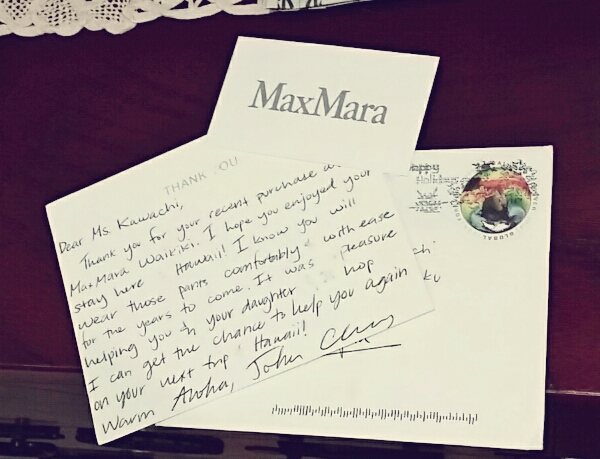 MaxMara
THANK YOU
Dear Ms. Kawachi,
Thank you for your recent purchase a
MaxMara Waikiki. I hope you enjoyed your
stay here Hawaii! I know you will
wear those pants comfortably with ease
for the years to come. It was pleasure
helping you your daughter hop
I can get the chance to help you again
on your next trip Hawaii!
Warm Aloha, John
Happy
Holidays
GLOBAL
FOREVER